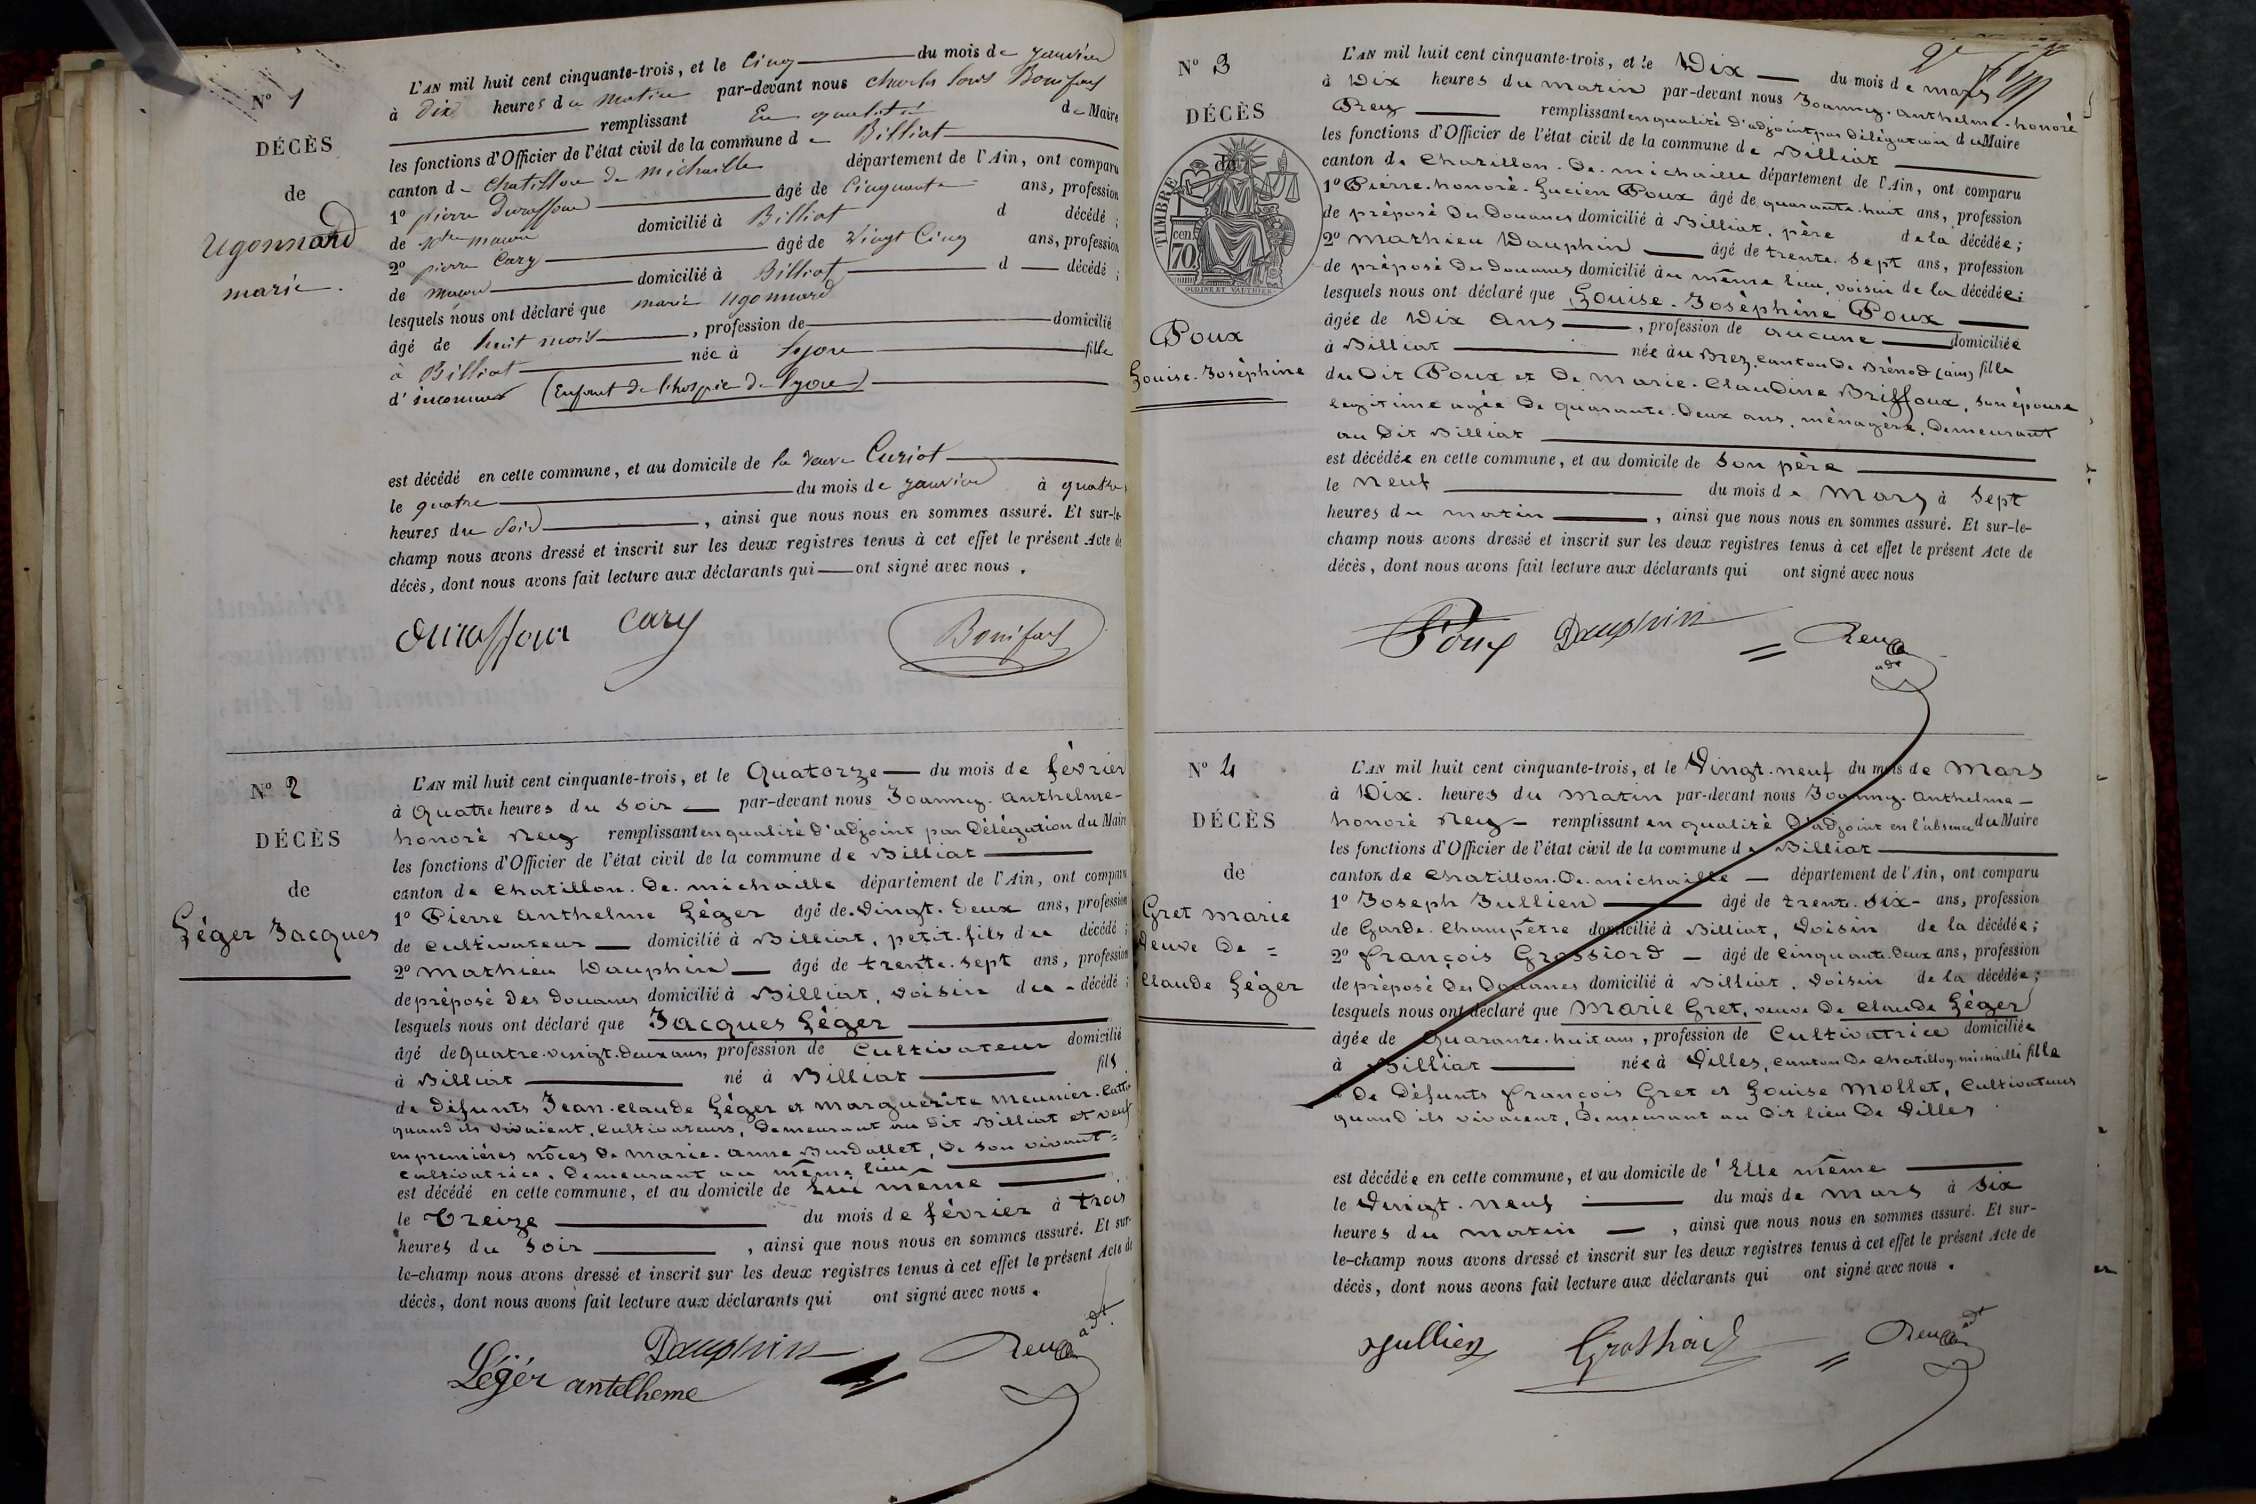 N° 1
DÉCÈS
de
Ugonnard
marie.
L'AN mil huit cent cinquante-trois, et le Cinq du mois de janvier
à dix heures du matin par-devant nous Charles louis Bonifas
remplissant En qualité de Maire
les fonctions d'Officier de l'état civil de la commune de Billiat
canton de Chatillon de Michaille département de l'Ain, ont comparu
1° pierre Duraffour âgé de Cinquante ans, profession
de domicilié à Billiat d décédé ;
2° pierre Cary âgé de Vingt Cinq ans, profession
de maçon domicilié à Billiat d décédé ;
lesquels nous ont déclaré que marie Ugonnard
âgé de huit mois, profession de domicilié
à Billiat née à lyon fille
d'inconnus (Enfant de l'hospice de lyon)
est décédé en cette commune, et au domicile de la veuve Curiot
le quatre du mois de janvier à quatre
heures du Soir, ainsi que nous nous en sommes assuré. Et sur-le-
champ nous avons dressé et inscrit sur les deux registres tenus à cet effet le présent Acte de
décès, dont nous avons fait lecture aux déclarants qui ont signé avec nous.
Duraffour Cary Bonifas
N° 2
DÉCÈS
de
Léger Jacques
L'AN mil huit cent cinquante-trois, et le Quatorze du mois de février
à Quatre heures du soir par-devant nous Joanny. anthelme-
honoré Rey remplissant en qualité d'adjoint par Délégation du Maire
les fonctions d'Officier de l'état civil de la commune de Billiat
canton de Chatillon. De. michaille département de l'Ain, ont comparu
1° Pierre anthelme Léger âgé de Vingt. Deux ans, profession
de Cultivateur domicilié à Billiat, petit. fils du décédé ;
2° Mathieu Dauphin âgé de trente. sept ans, profession
de préposé des Douanes domicilié à Billiat, voisin du décédé ;
lesquels nous ont déclaré que Jacques Léger
âgé de Quatre. vingt. Deux ans, profession de Cultivateur domicilié
à Billiat né à Billiat fils
de Défunts Jean. Claude Léger et Marguerite Meunier.
quand ils vivaient, Cultivateurs, Demeurant au Dit Billiat et veuf
en premières nôces De Marie. Anne Burdallet, De son vivant=
Cultivatrice, Demeurant au même lieu
est décédé en cette commune, et au domicile de Lui même
le Treize du mois de février à trois
heures du Soir, ainsi que nous nous en sommes assuré. Et sur-
le-champ nous avons dressé et inscrit sur les deux registres tenus à cet effet le présent Acte de
décès, dont nous avons fait lecture aux déclarants qui ont signé avec nous.
Dauphin Rey adt
Légér antelheme
N° 3
DÉCÈS
de
TIMBRE
70 cen
OUDINE ET VAUTHIER
Poux
Louise. Joséphine
L'AN mil huit cent cinquante-trois, et le Dix du mois de mars
à Dix heures du matin par-devant nous Joanny. anthelme. honoré
Rey remplissant en qualité d'adjoint par délégation du Maire
les fonctions d'Officier de l'état civil de la commune de Billiat
canton de Chatillon. De. michaille département de l'Ain, ont comparu
1° Pierre. honoré. Lucien Poux âgé de quarante. huit ans, profession
de préposé Des Douanes domicilié à Billiat, père de la décédée;
2° Mathieu Dauphin âgé de trente. sept ans, profession
de préposé Des Douanes domicilié au même lieu, voisin de la décédée;
lesquels nous ont déclaré que Louise. Joséphine Poux
âgée de Dix ans, profession de aucune domiciliée
à Billiat née au Brez, canton De Brénod (ain) fille
du Dit Poux et De Marie. Claudine Briffoux, son épouse
legitime agée De quarante. Deux ans, ménagère, Demeurant
au Dit Billiat
est décédée en cette commune, et au domicile de son père
le Neuf du mois de Mars à Sept
heures du matin, ainsi que nous nous en sommes assuré. Et sur-le-
champ nous avons dressé et inscrit sur les deux registres tenus à cet effet le présent Acte de
décès, dont nous avons fait lecture aux déclarants qui ont signé avec nous
Poux Dauphin Rey
adt
N° 4
DÉCÈS
de
Gret Marie
Veuve De =
Claude Léger
L'AN mil huit cent cinquante-trois, et le Vingt. neuf du mois de Mars
à Dix. heures du Matin par-devant nous Joanny. Anthelme
honoré Rey remplissant en qualité d'adjoint en l'absence du Maire
les fonctions d'Officier de l'état civil de la commune de Billiat
canton de Chatillon. De. michaille département de l'Ain, ont comparu
1° Joseph Jullien âgé de trente. six ans, profession
de Garde. Champêtre domicilié à Billiat, Voisin de la décédée;
2° François Grossiord âgé de Cinquante. Deux ans, profession
de préposé Des Douanes domicilié à Billiat, Voisin de la décédée;
lesquels nous ont déclaré que Marie Gret, veuve De Claude Léger
âgée de Quarante. huit ans, profession de Cultivatrice domiciliée
à Billiat née à Villes, canton De Chatillon. michaille fille
De Défunts François Gret et Louise Mollet, Cultivateurs
quand ils vivaient, Demeurant au Dit lieu De Villes
est décédée en cette commune, et au domicile de Elle même
le Vingt. neuf du mois de Mars à Six
heures du matin, ainsi que nous nous en sommes assuré. Et sur-
le-champ nous avons dressé et inscrit sur les deux registres tenus à cet effet le présent Acte de
décès, dont nous avons fait lecture aux déclarants qui ont signé avec nous.
Jullien Grossiord Rey adt